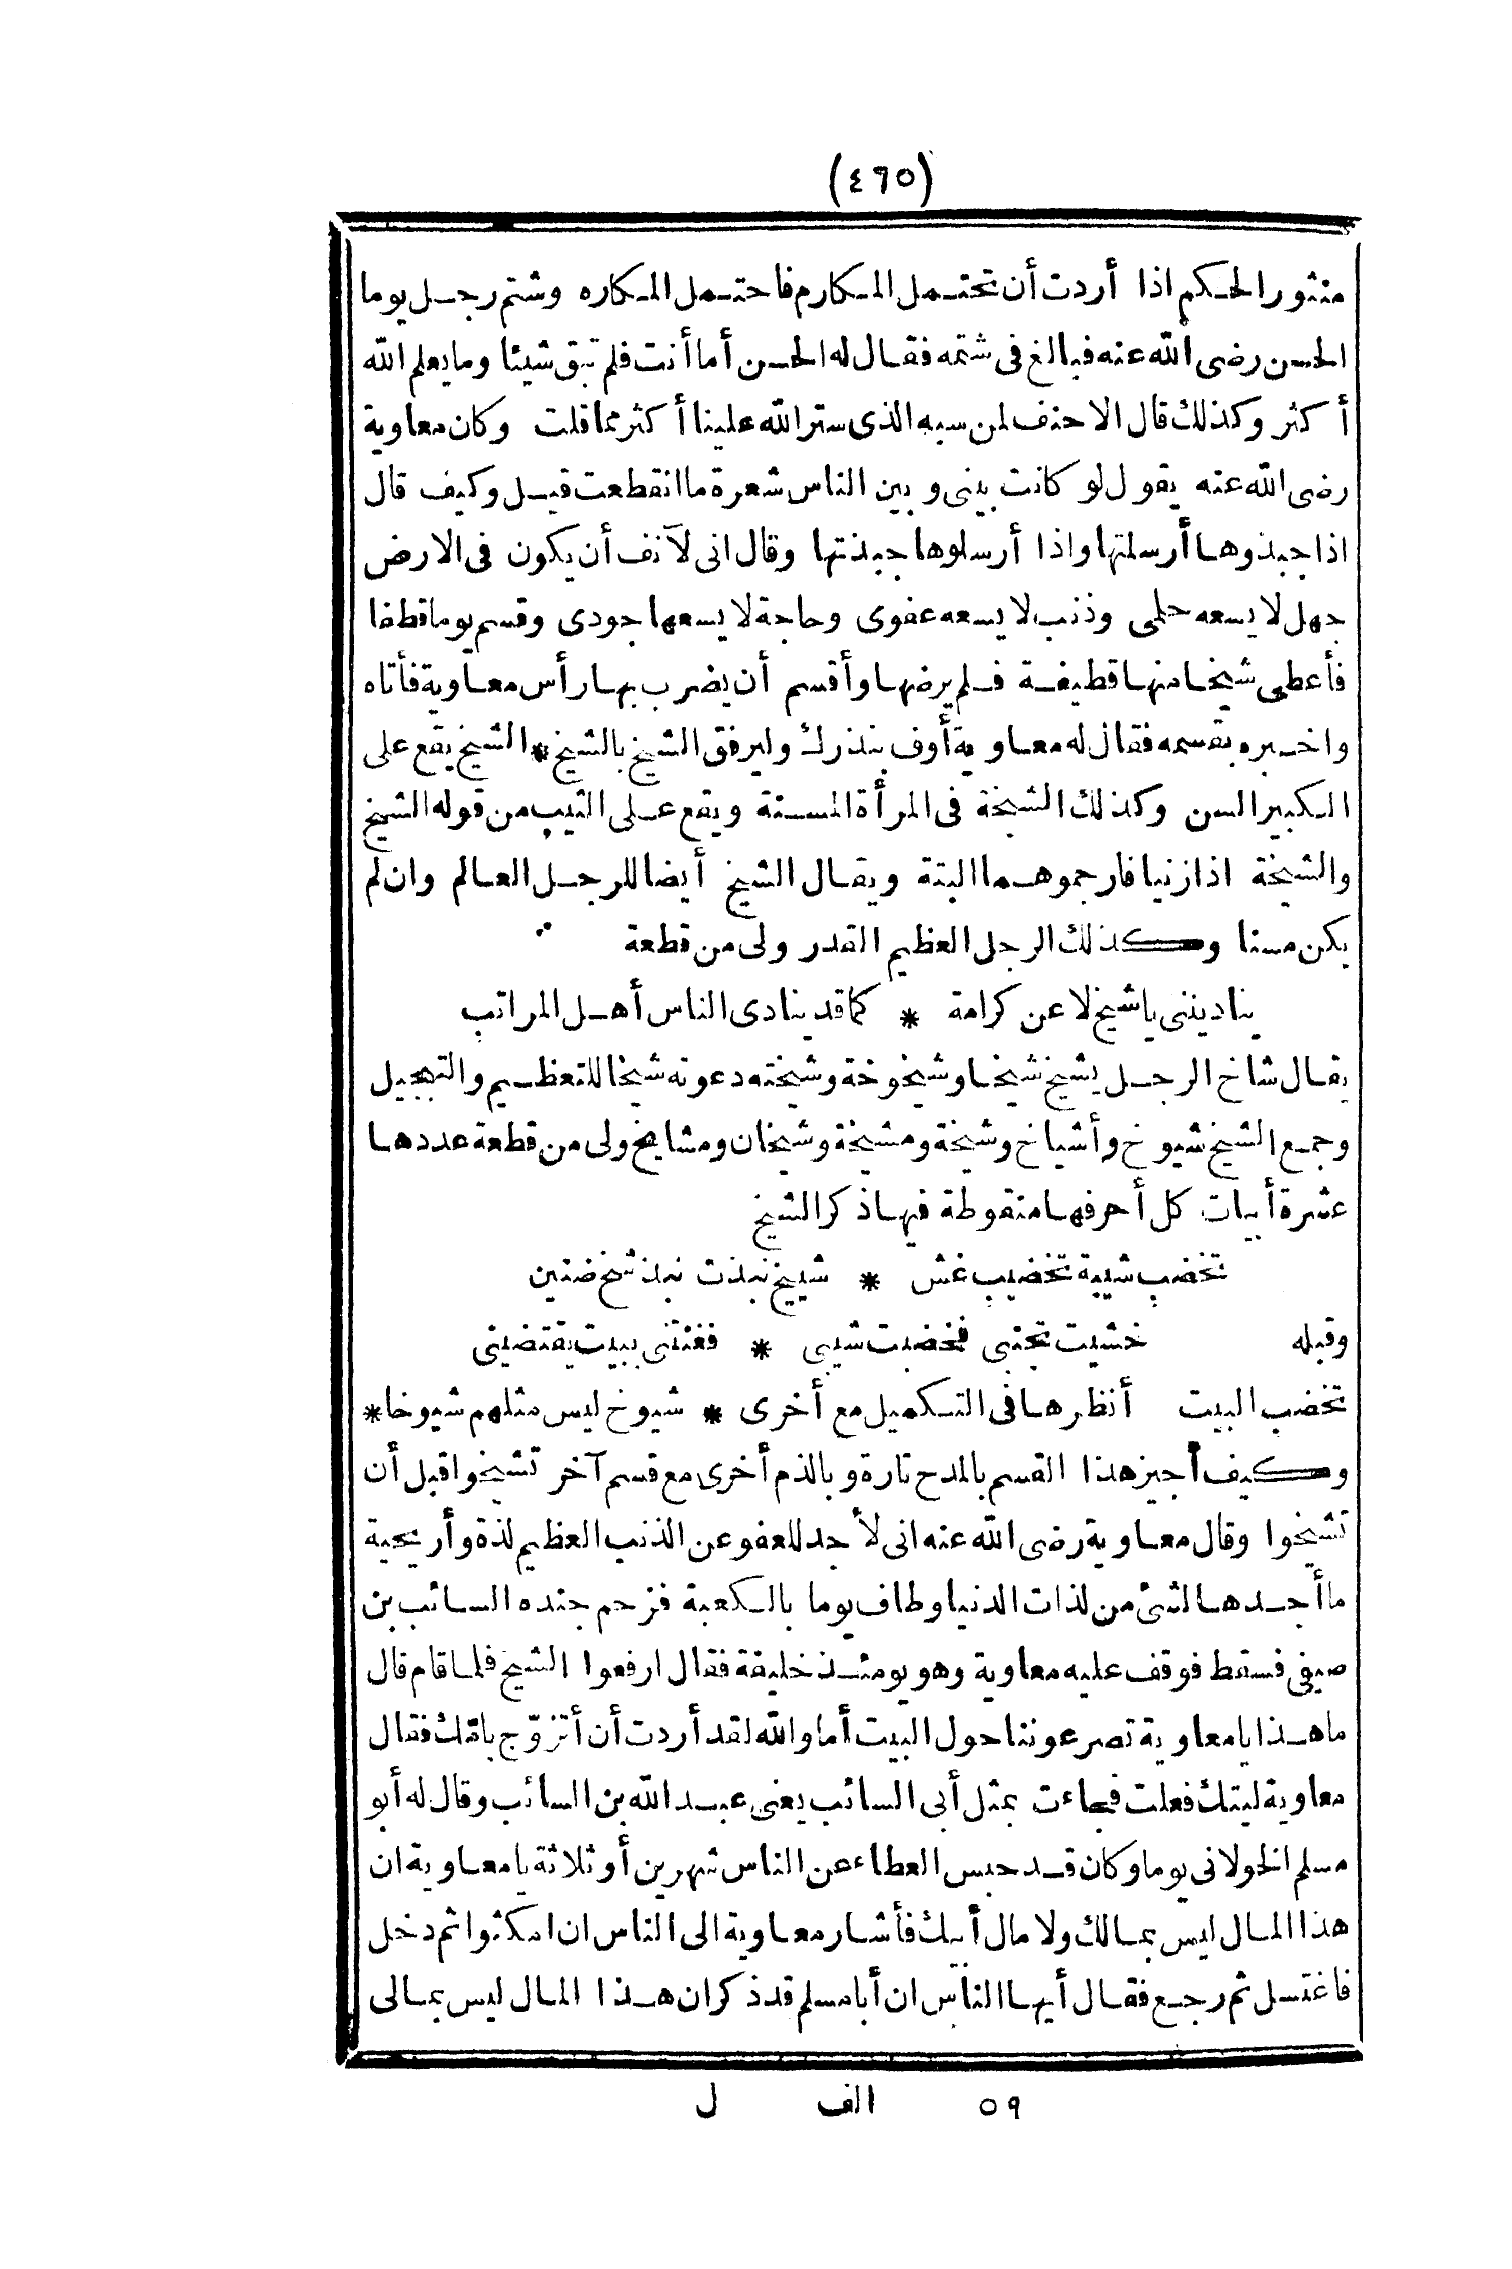 (٤٦٥)
منثور الحكم اذا أردت أن تحتمل المكارم فاحتمل المكاره وشتم رجل يوما
الحسن رضى الله عنه فبالغ فى شتمه فقال له الحسن أما أنت فلم تبق شيئا وما يعلم الله
أكثر وكذلك قال الاحنف لمن سبه الذى ستر الله علينا أكثر مما قلت وكان معاوية
رضى الله عنه يقول لو كانت بينى وبين الناس شعرة ما انقطعت قيل وكيف قال
اذا جبذوها أرسلتها واذا أرسلوها جبذتها وقال انى لآنف أن يكون فى الارض
جهل لا يسعه حلمى وذنب لا يسعه عفوى وحاجة لا يسعها جودى وقسم يوما قطفا
فأعطى شيخا منها قطيفة فلم يرضها وأقسم أن يضرب بها رأس معاوية فأتاه
واخبره بقسمه فقال له معاوية أوف بنذرك وليرفق الشيخ بالشيخ * الشيخ يقع على
الكبير السن وكذلك الشيخة فى المرأة المسنة ويقع على الثيب من قوله الشيخ
والشيخة اذا زنيا فارجموهما البتة ويقال الشيخ أيضا للرجل العالم وان لم
يكن مسنا وكذلك الرجل العظيم القدر ولى من قطعة
ينادينى يا شيخ لا عن كرامة * كما قد ينادى الناس أهل المراتب
يقال شاخ الرجل يشيخ شيخا وشيخوخة وشيخته دعوته شيخا للتعظيم والتبجيل
وجمع الشيخ شيوخ وأشياخ وشيخة ومشيخة وشيخان ومشايخ ولى من قطعة عددها
عشرة أبيات كل أحرفها منقوطة فيها ذكر الشيخ
تخضب شيبة تخضيب غش * شييخ نبذت نبذ شخ ضنين
وقبله خشيت تجنبى فخضبت شيبى * ففنتنى ببيت يقتضينى
تخضب البيت أنظرها فى التكميل مع أخرى * شيوخ ليس مثلهم شيوخا *
وكيف أجيز هذا القسم بالمدح تارة وبالذم أخرى مع قسم آخر تشيخوا قبل أن
تشيخوا وقال معاوية رضى الله عنه انى لأجد للعفو عن الذنب العظيم لذة وأريحية
ما أجدها لشئ من لذات الدنيا وطاف يوما بالكعبة فزحم جنده السائب بن
صيفى فسقط فوقف عليه معاوية وهو يومئذ خليفة فقال ارفعوا الشيخ فلما قام قال
ما هذا يا معاوية تصرعوننا حول البيت أما والله لقد أردت أن أتزوّج بامّك فقال
معاوية ليتك فعلت فجاءت بمثل أبى السائب يعنى عبد الله بن السائب وقال له أبو
مسلم الخولانى يوما وكان قد حبس العطاء عن الناس شهرين أو ثلاثة يا معاوية ان
هذا المال ليس بمالك ولا مال أبيك فأشار معاوية الى الناس ان امكثوا ثم دخل
فاغتسل ثم رجع فقال أيها الناس ان أبا مسلم قد ذكر ان هذا المال ليس بمالى
٥٩ الف ل